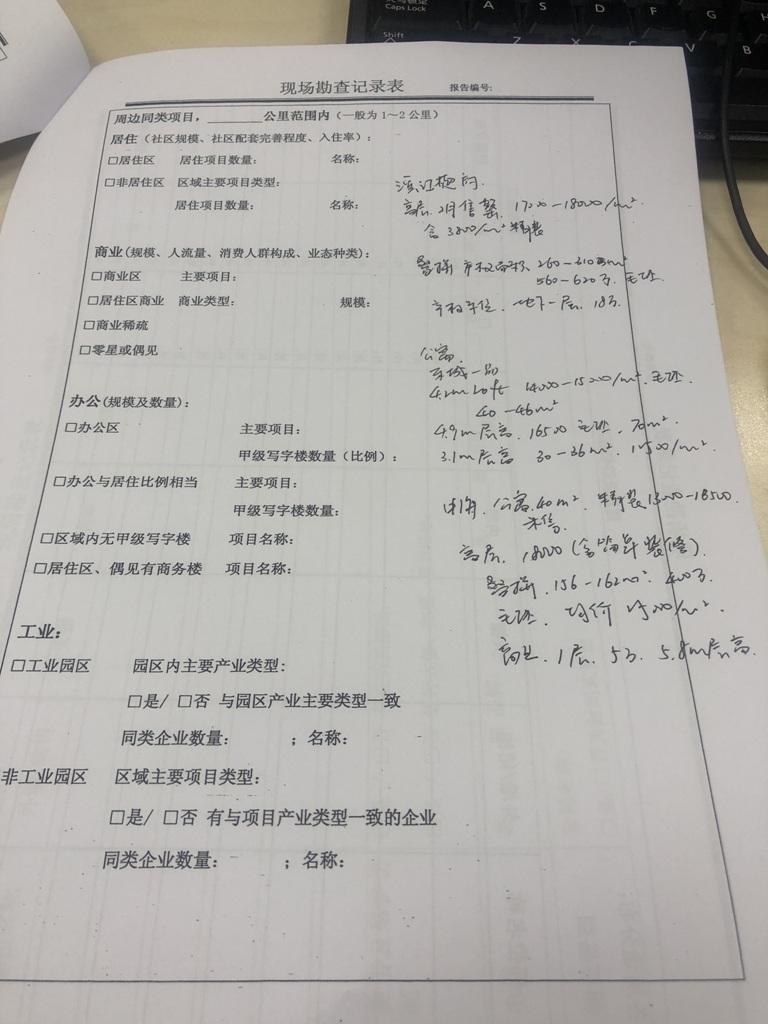 Caps Lock
A
S
D
F
G
H
Shift
Z
X
C
V
B
现场勘查记录表 报告编号:
周边同类项目，______公里范围内（一般为 1～2 公里）
居住（社区规模、社区配套完善程度、入住率）:
□居住区 居住项目数量: 名称:
□非居住区 区域主要项目类型:
居住项目数量: 名称:
高层 2月售罄 17000-18000/m²
含3800/m² 精装
商业(规模、人流量、消费人群构成、业态种类):
叠拼 产权面积 260-310m²
□商业区 主要项目:
560-620万 毛坯
□居住区商业 商业类型: 规模:
产权车位 地下一层 18万
□商业稀疏
□零星或偶见
公寓
4.2m Loft 14000-15200/m² 毛坯
办公(规模及数量):
40-46m²
□办公区 主要项目:
4.9m层高 16500 毛坯 70m²
甲级写字楼数量（比例）:
3.1m层高 30-36m² 12500/m²
□办公与居住比例相当 主要项目:
公寓 40m² 精装 18000-18500
甲级写字楼数量:
未售
□区域内无甲级写字楼 项目名称:
高层 18000
□居住区、偶见有商务楼 项目名称:
叠拼 156-162m² 400万
毛坯 均价 25000/m²
工业:
商业 1层 5万 5.8m层高
□工业园区 园区内主要产业类型:
□是/ □否 与园区产业主要类型一致
同类企业数量: ；名称:
非工业园区 区域主要项目类型:
□是/ □否 有与项目产业类型一致的企业
同类企业数量: ；名称: